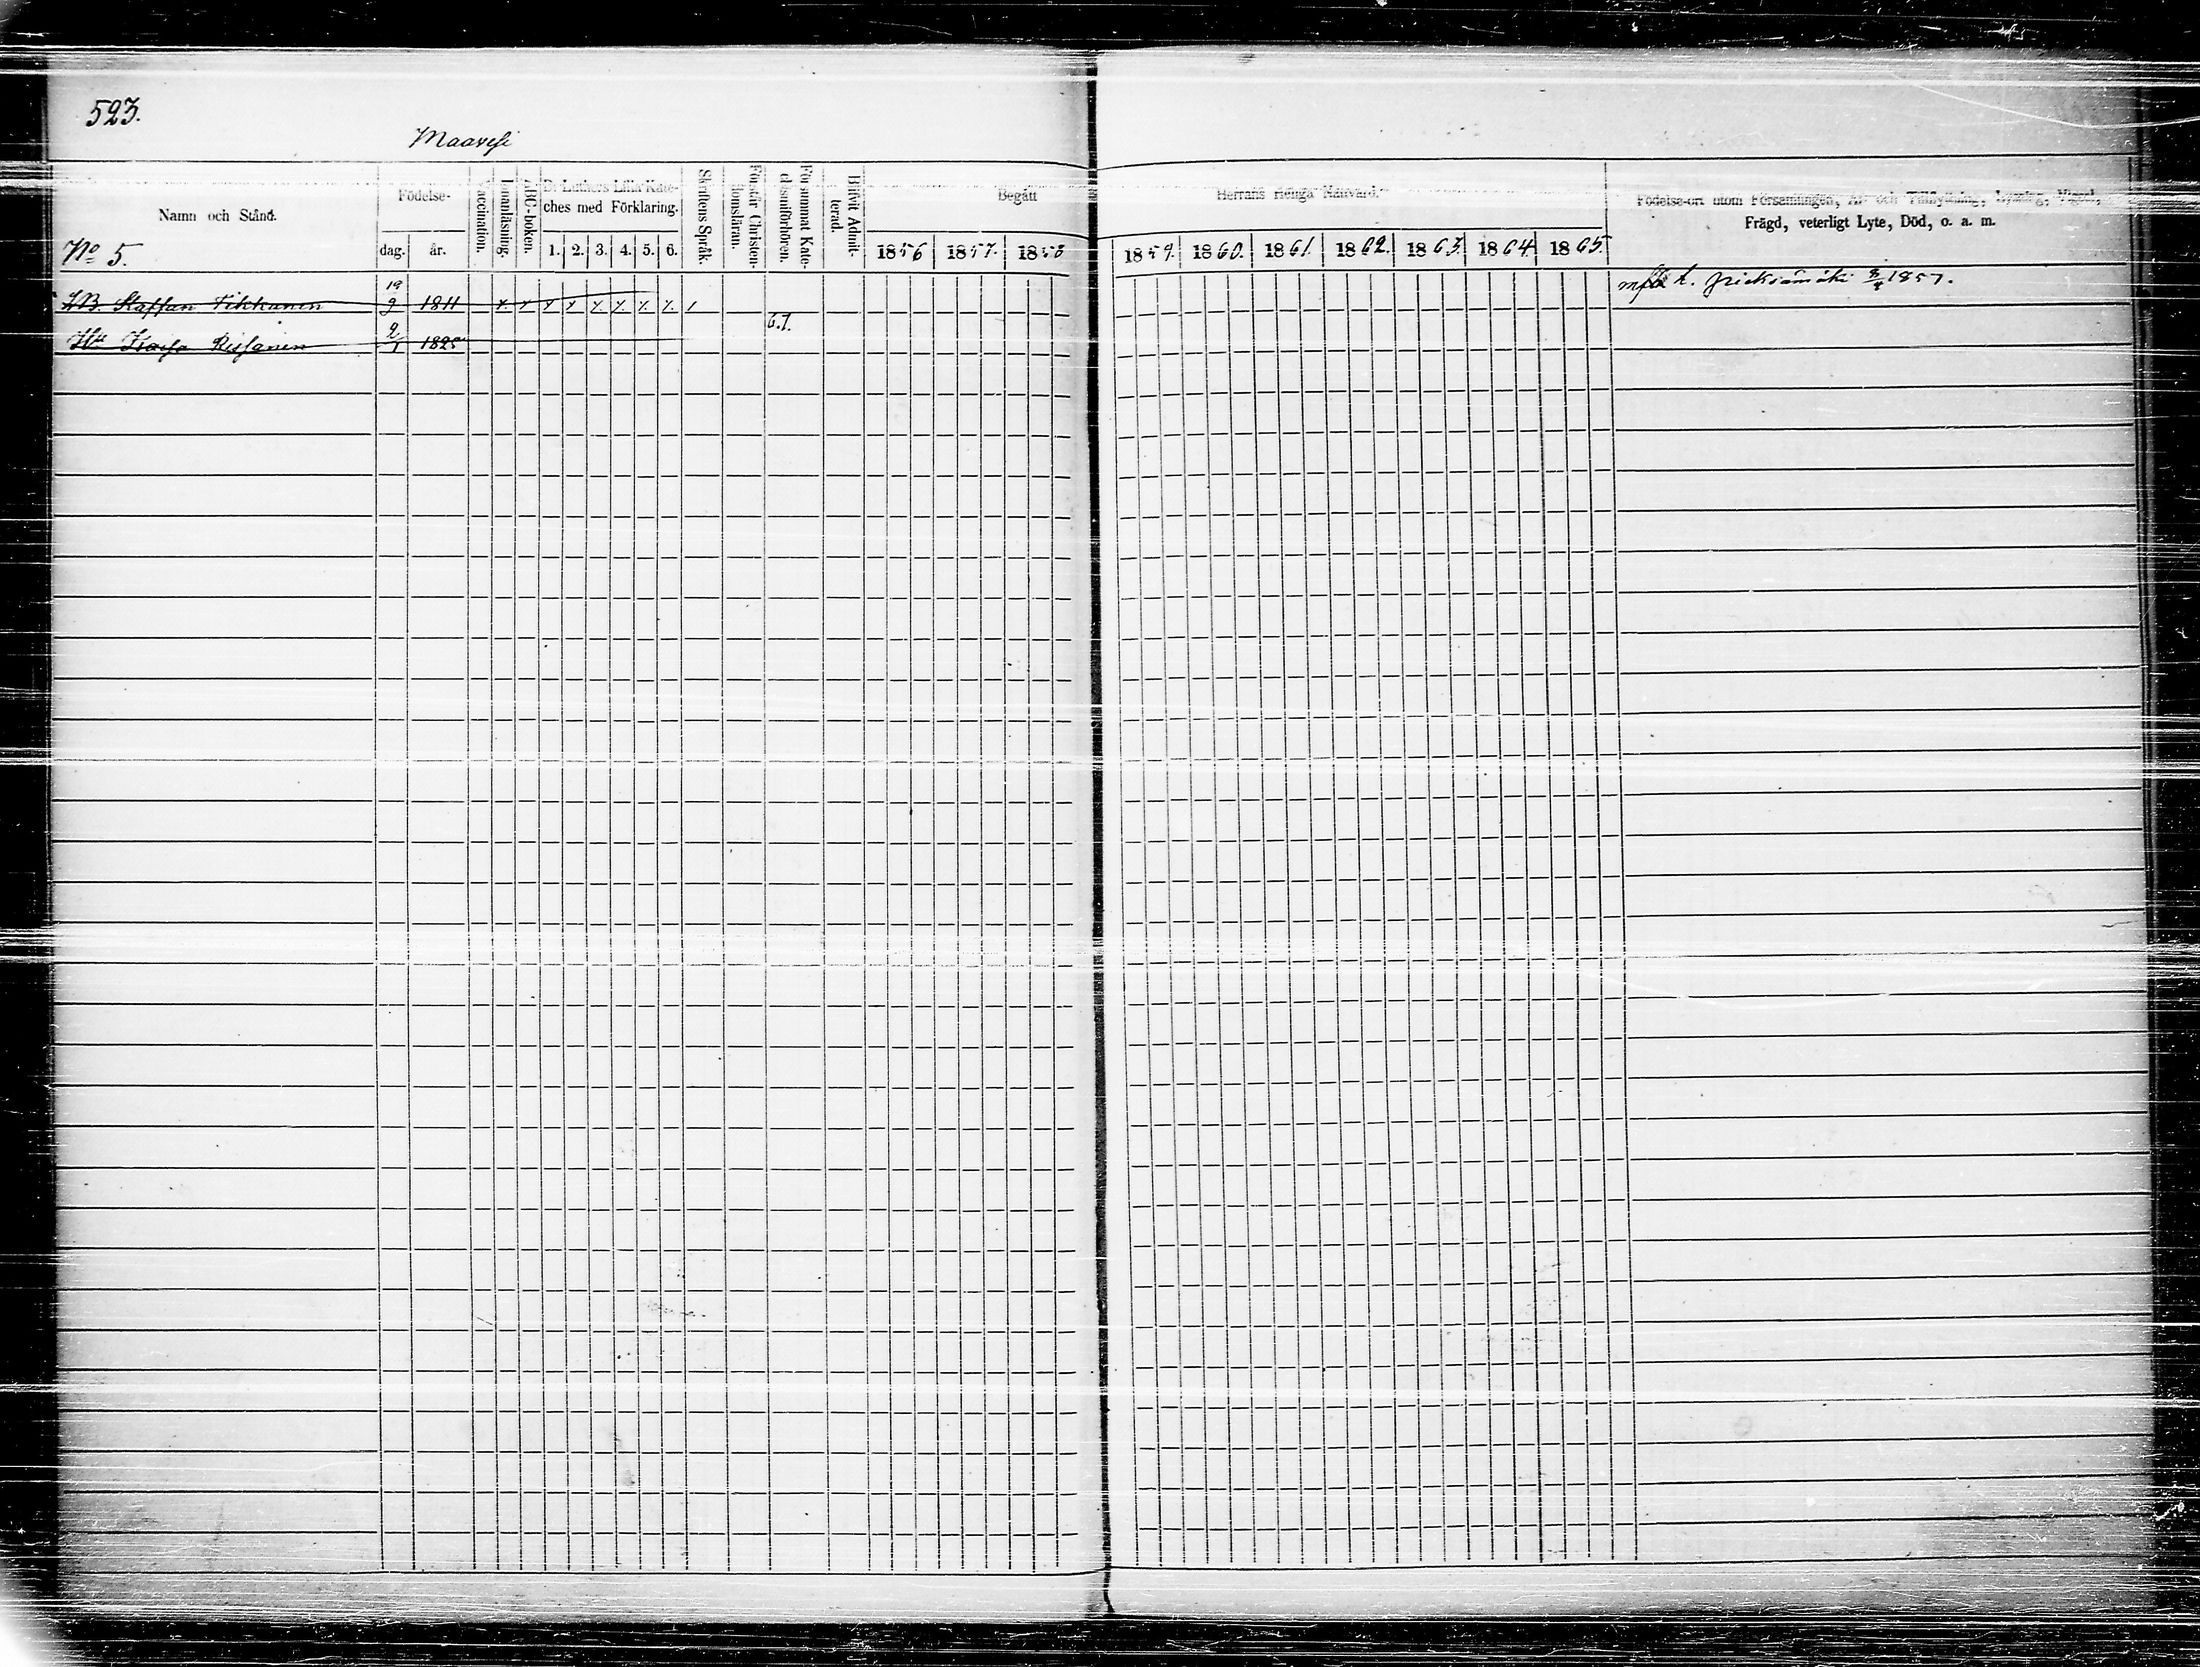 523.
Maavesi
Namn och Stånd.
Födelse-
dag. år.
Vaccination.
Innanläsning.
ABC-boken.
D:r Luthers Lilla Kate-
ches med Förklaring.
1. 2. 3. 4. 5. 6.
Skriftens Språk.
Förstår Christen-
domsläran.
Försummat Kate-
chismiförhören.
Blifvit Admit-
terad.
Begått
1856 1857. 1858
Herrans Heliga Nattvard.
1859. 1860. 1861. 1862. 1863. 1864. 1865.
Födelse-ort utom Församlingen, Af- och Tillflyttning, Lysning, Vigsel,
Frägd, veterligt Lyte, Död, o. a. m.
No 5.
Staffan Tikkanen 19/9 1811 x x x x x x x x
t. Pieksämäki 1857.
Hu Kaisa Rissanen 2/1 1825 6.7.